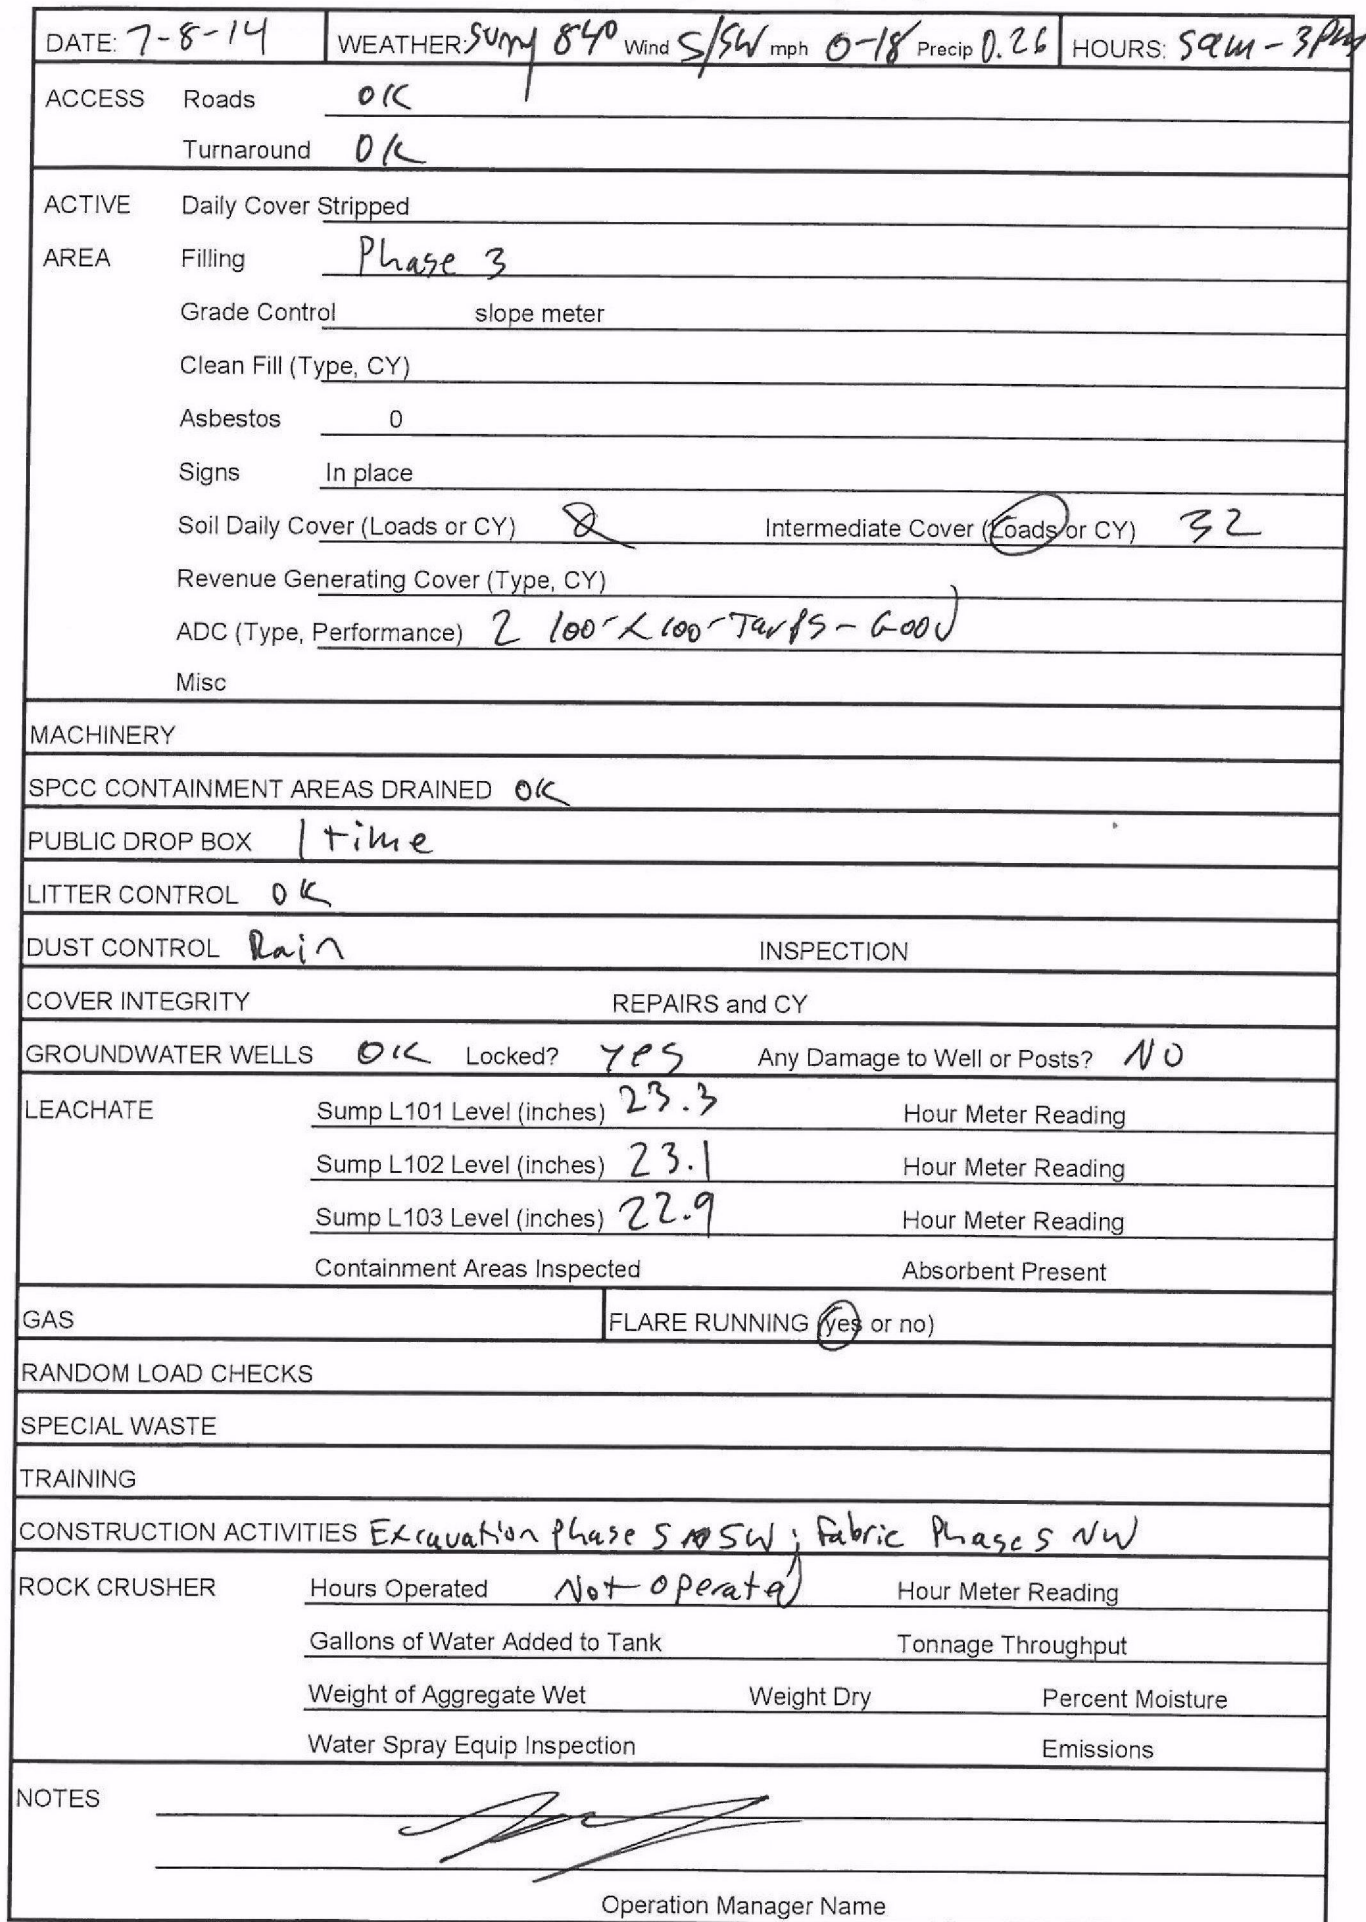 DATE: 7-8-14 WEATHER: Sunny 84° Wind S/SW mph 0-18 Precip 0.26 HOURS: 5am - 3pm
ACCESS Roads OK
Turnaround OK
ACTIVE Daily Cover Stripped
AREA Filling Phase 3
Grade Control slope meter
Clean Fill (Type, CY)
Asbestos 0
Signs In place
Soil Daily Cover (Loads or CY) Intermediate Cover (Loads or CY) 32
Revenue Generating Cover (Type, CY)
ADC (Type, Performance) 2 100' X 100' Tarps - Good
Misc
MACHINERY
SPCC CONTAINMENT AREAS DRAINED OK
PUBLIC DROP BOX 1 time
LITTER CONTROL OK
DUST CONTROL Rain INSPECTION
COVER INTEGRITY REPAIRS and CY
GROUNDWATER WELLS OK Locked? Yes Any Damage to Well or Posts? NO
LEACHATE Sump L101 Level (inches) 23.3 Hour Meter Reading
Sump L102 Level (inches) 23.1 Hour Meter Reading
Sump L103 Level (inches) 22.9 Hour Meter Reading
Containment Areas Inspected Absorbent Present
GAS FLARE RUNNING (yes or no)
RANDOM LOAD CHECKS
SPECIAL WASTE
TRAINING
CONSTRUCTION ACTIVITIES Excavation Phase 5 SW; Fabric Phase 5 NW
ROCK CRUSHER Hours Operated Not operated Hour Meter Reading
Gallons of Water Added to Tank Tonnage Throughput
Weight of Aggregate Wet Weight Dry Percent Moisture
Water Spray Equip Inspection Emissions
NOTES
Operation Manager Name